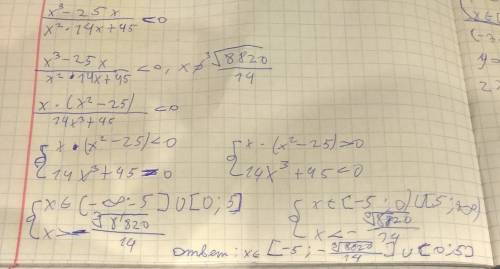 x³-25x / x²·14x+45 <0
x³-25x / x²·14x+45 <0, x≠ ³√8820 / 14
x·(x²-25) / 14x³+45 <0
{ x·(x²-25)<0 { x-(x²-25)>0
{ 14x³+45>0 { 14x³+45<0
{ x∈(-∞-5]∪[0;5] { x∈[-5;0)∪[5;+∞)
{ x>- ³√8820 / 14 { x<- ³√8820 / 14
Ответ: x∈[-5; - ³√8820 / 14]∪[0;5]